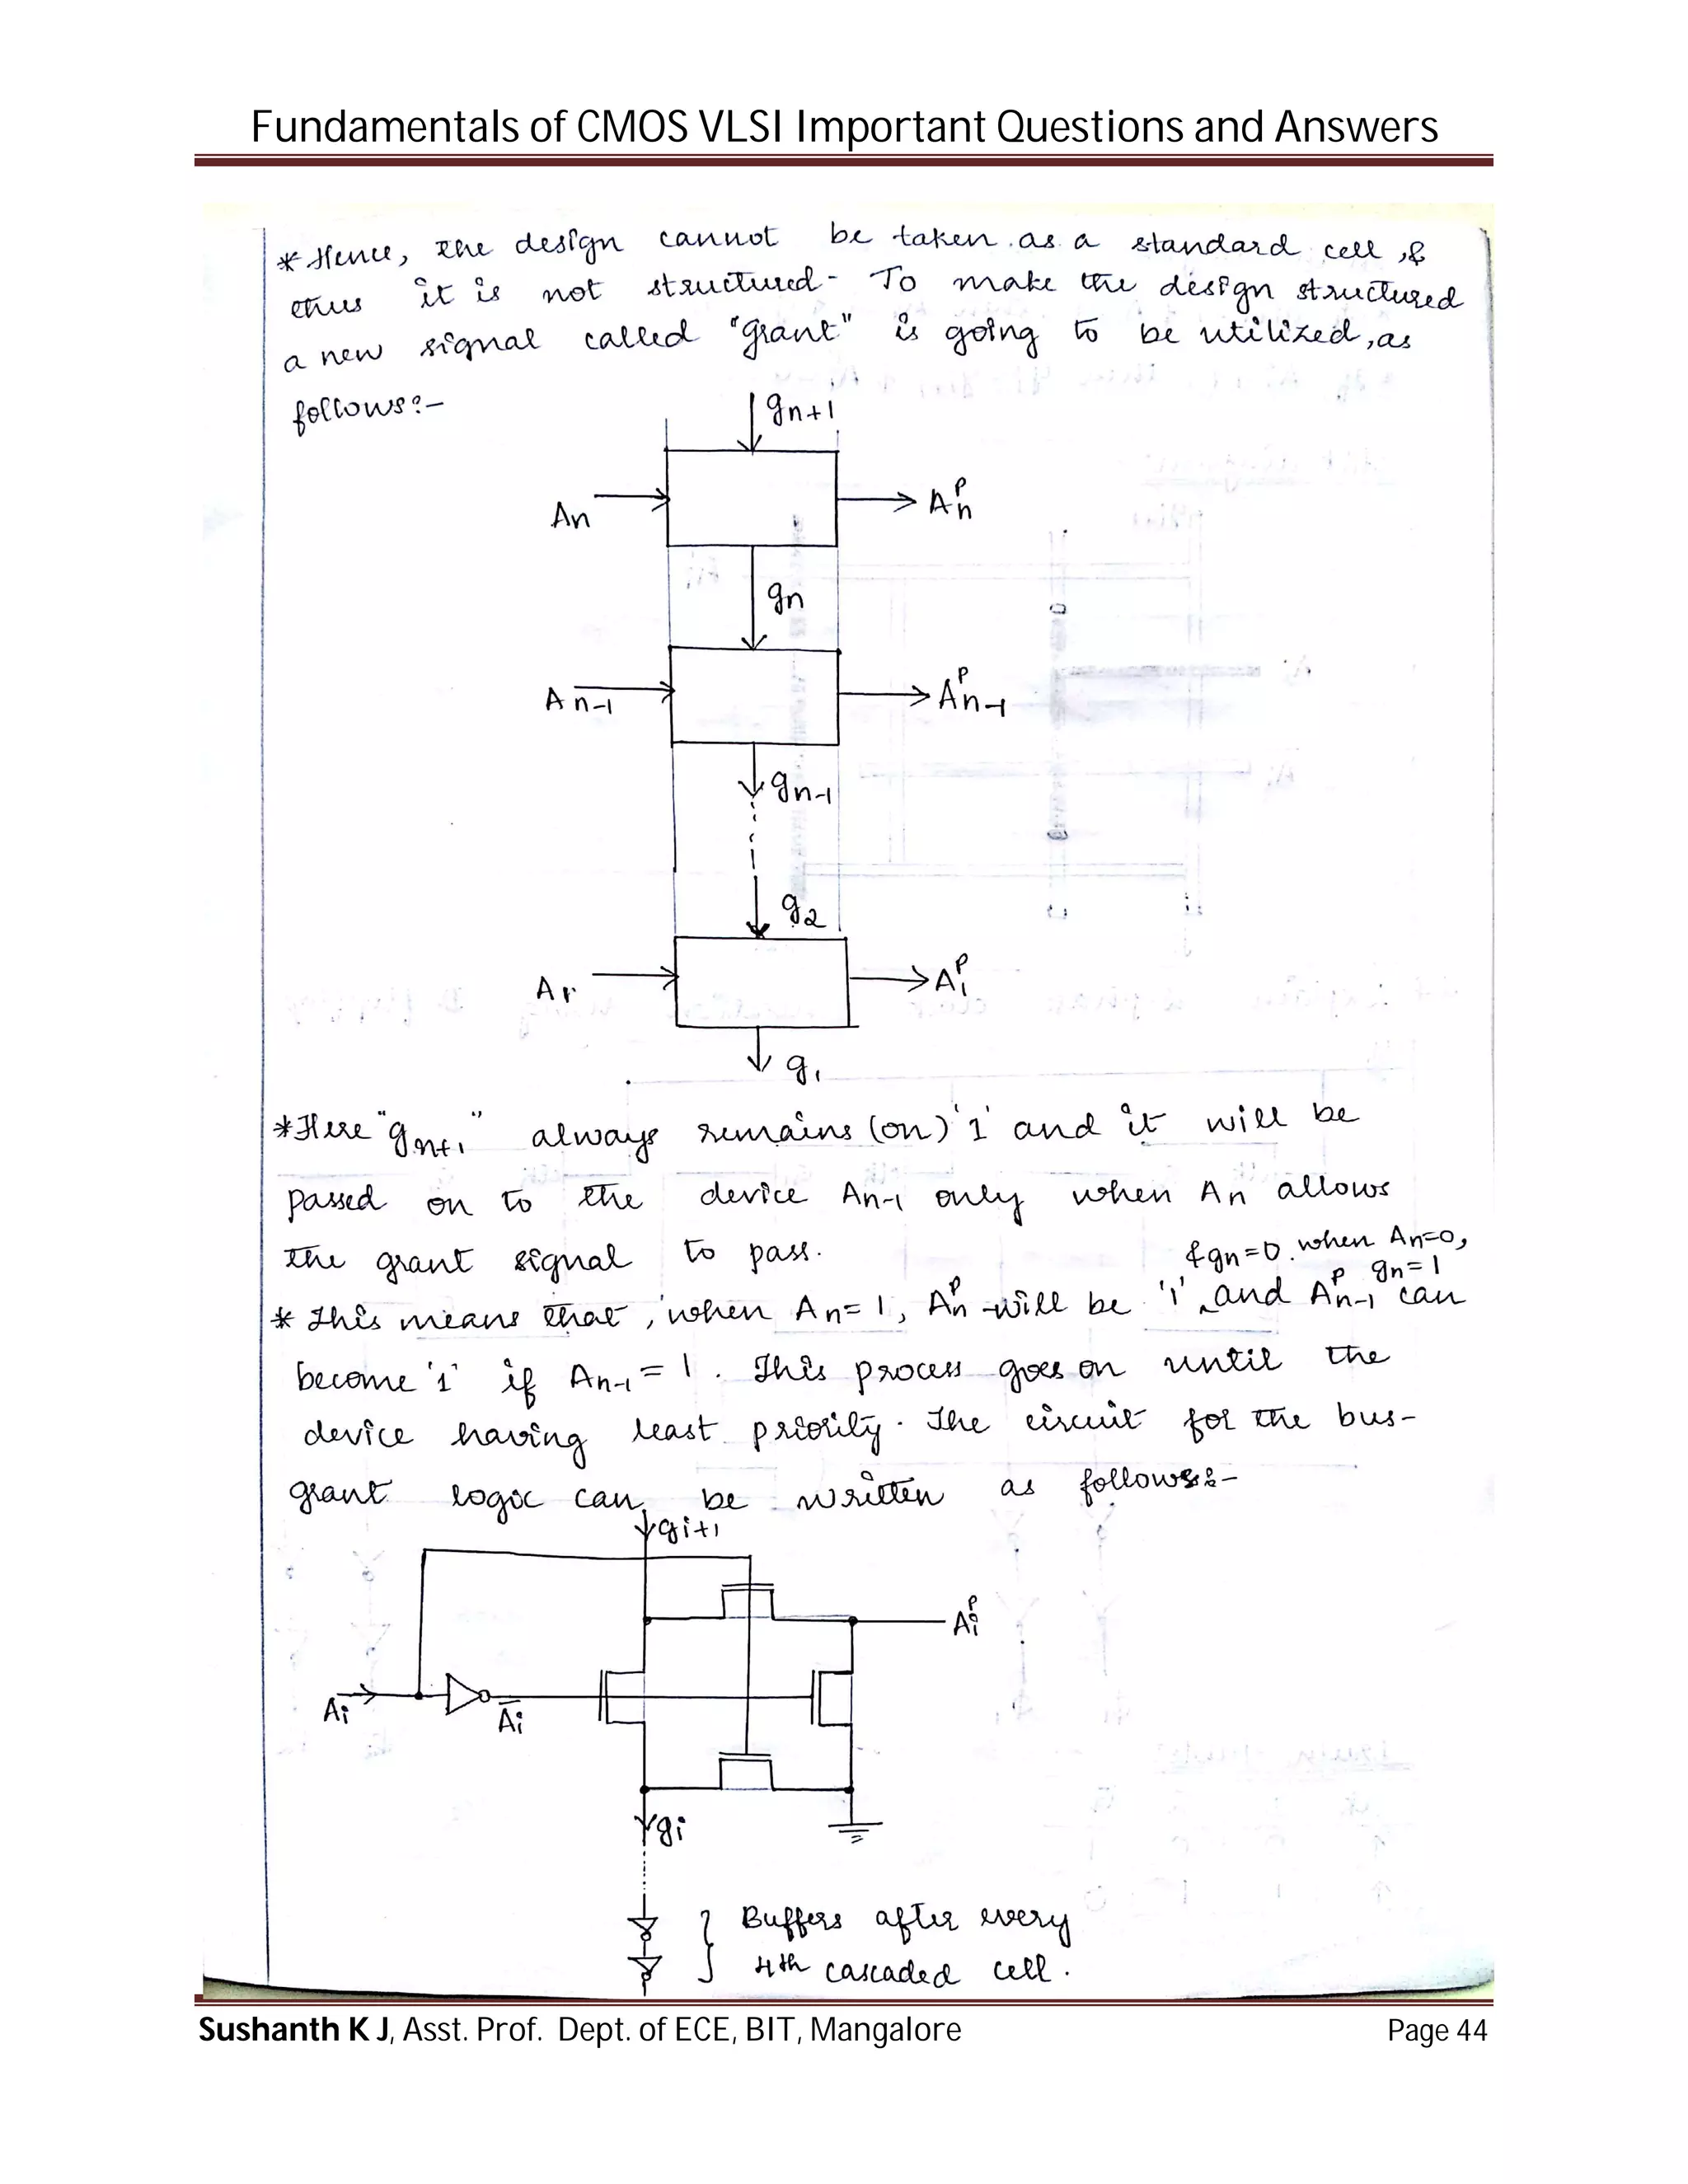 Fundamentals of CMOS VLSI Important Questions and Answers
* Hence, the design cannot be taken as a standard cell, &
thus it is not structured - To make the design structured
a new signal called "grant" is going to be utilized, as
follows:-
gn+1
An
A^p n
gn
A n-1
A^p n-1
gn-1
g2
A1
A^p 1
g1
* Here "gn+1" always remains (on) '1' and it will be
passed on to the device An-1 only when An allows
the grant signal to pass.
& gn=0. when An=0,
gn=1
* This means that, when An=1, A^p n will be '1' ^ and A^p n-1 can
become '1' if An-1 = 1. This process goes on until the
device having least priority. The circuit for the bus-
grant logic can be written as follows:-
gi+1
A^p i
Ai
A̅i
gi
Buffers after every
4th cascaded cell.
Sushanth K J, Asst. Prof. Dept. of ECE, BIT, Mangalore Page 44